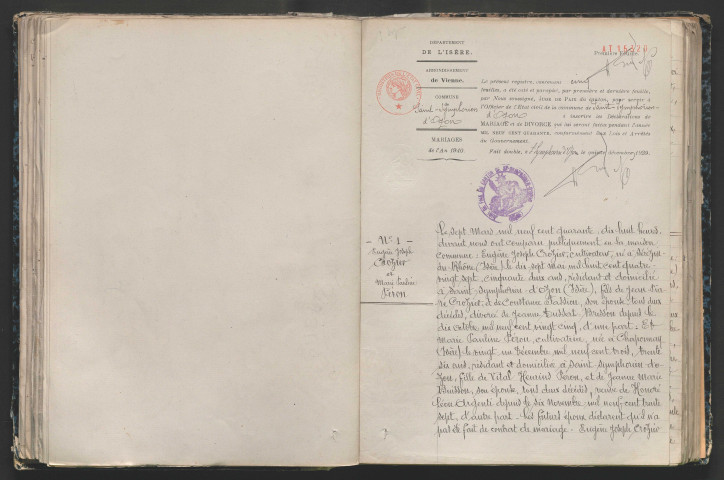 DÉPARTEMENT
DE L'ISÈRE.
ARRONDISSEMENT
de Vienne.
COMMUNE
Saint-Symphorien
d'Ozon
MARIAGES
de l'An 1940.
Première feuille.
Le présent registre, contenant
feuillets, a été coté et paraphé, par première et dernière feuille,
par Nous soussigné, Juge de Paix du canton, pour servir à
l'Officier de l'État civil de la commune de Saint-Symphorien-
d'Ozon à inscrire les Déclarations de
MARIAGE et de DIVORCE qui lui seront faites pendant l'année
MIL NEUF CENT QUARANTE, conformément aux Lois et Arrêtés
du Gouvernement.
Fait double, à St Symphorien d'Ozon, le quinze décembre 1939.
- N° 1 -
Eugène Joseph
Crozier
et
Marie Pauline
Péron
Le sept Mars mil neuf cent quarante, dix-huit heures
devant nous ont comparu publiquement en la maison
commune : Eugène Joseph Crozier, cultivateur, né à
du-Rhône (Isère) le dix sept mai mil huit cent quatre
vingt sept, cinquante deux ans, résidant et domicilié
à Saint Symphorien-d'Ozon (Isère), fils de Jean
Crozier, et de Constance son épouse, tous deux
décédés, divorcé de Jeanne Bresson depuis le
dix octobre mil neuf cent vingt cinq, d'une part : Et
Marie Pauline Péron, cultivatrice, née à Chaponnay
(Isère) le vingt un Décembre mil neuf cent trois, trente
six ans, résidant et domiciliée à Saint Symphorien-d'O-
zon, fille de Vital Péron, et de Jeanne Marie
Buisson, son épouse, tous deux décédés, veuve de Honoré
Léon Argenti depuis le six Novembre mil neuf cent trente
sept, d'autre part. Les futurs époux déclarent qu'il n'a
pas été fait de contrat de mariage. Eugène Joseph Crozier